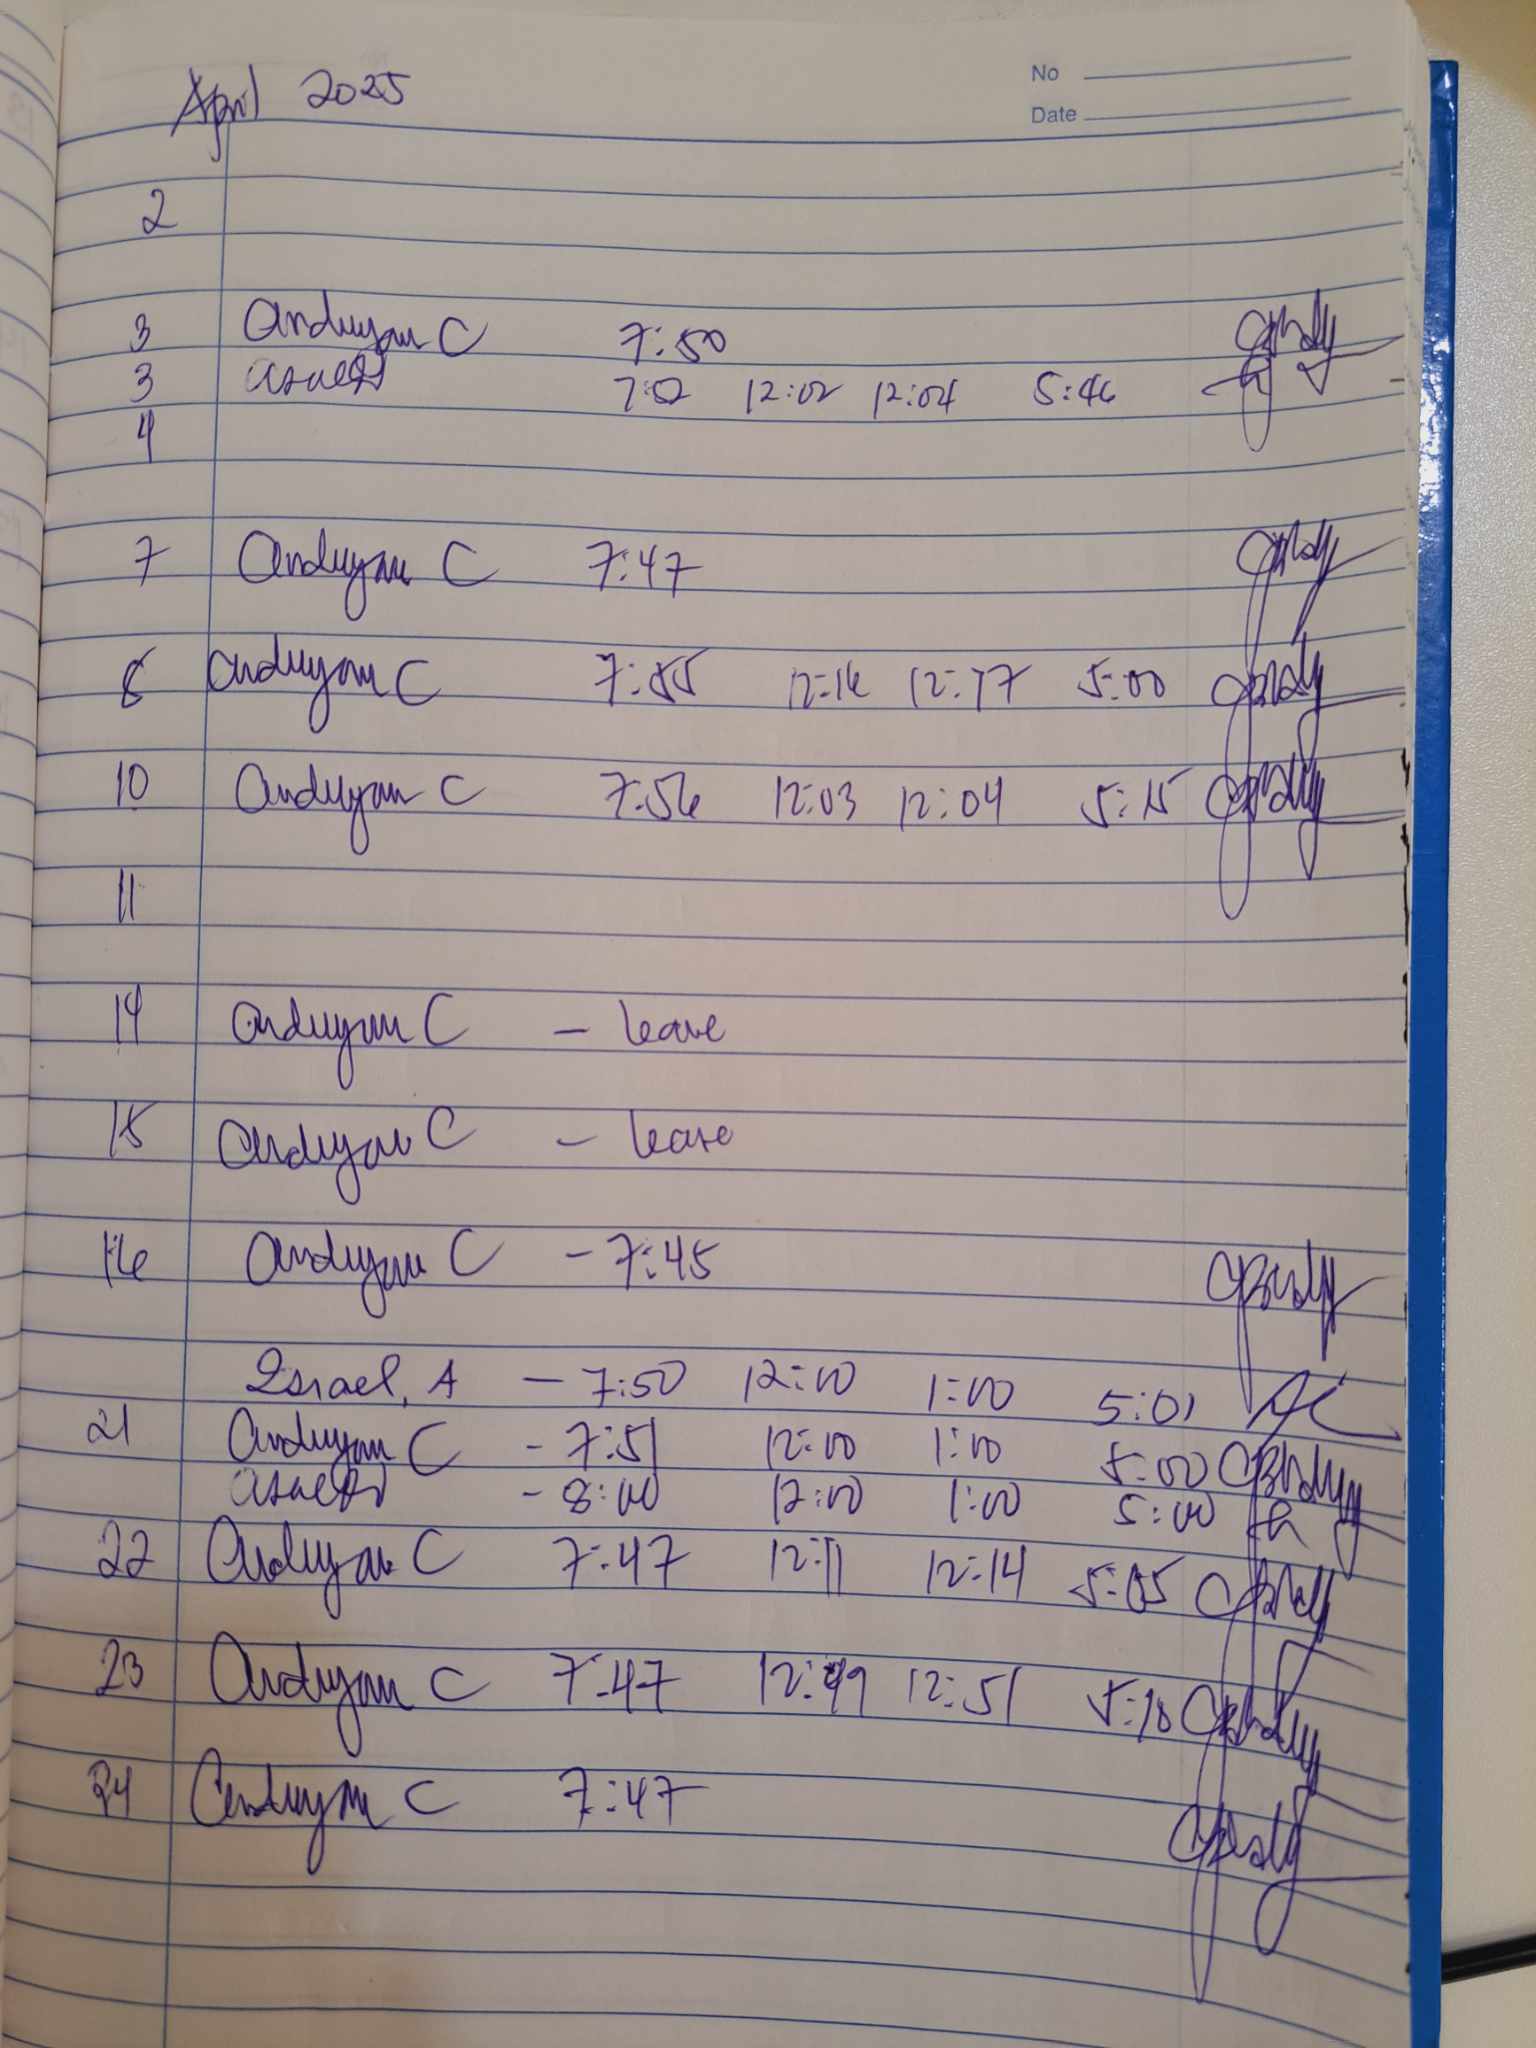 No
Date
April 2025
2
3 Anduyan C 7:50
3 7:52 12:02 12:04 5:46
4
7 Anduyan C 7:47
8 Anduyan C 7:55 12:16 12:17 5:00
10 Anduyan C 7:56 12:03 12:04 5:15
11
14 Anduyan C – leave
15 Anduyan C – leave
16 Anduyan C – 7:45
Israel, A – 7:50 12:00 1:00 5:01
21 Anduyan C - 7:51 12:00 1:00 5:00
- 8:00 12:00 1:00 5:00
22 Anduyan C 7:47 12:11 12:14 5:05
23 Anduyan C 7:47 12:49 12:51 5:10
24 Anduyan C 7:47